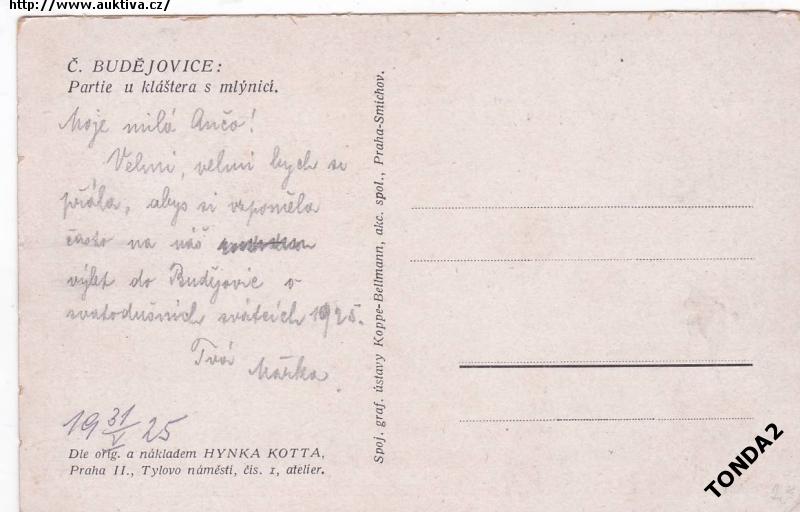 http://www.auktiva.cz/
Č. BUDĚJOVICE:
Partie u kláštera s mlýnicí.
Moje milá Ančo!
Velmi, velmi bych si
přála, abys si vzpoměla
často na náš
výlet do Budějovic o
svatodušních svátcích 1925.
Tvá
Mařka
19 31/V 25
Dle orig. a nákladem HYNKA KOTTA,
Praha II., Tylovo náměstí, čís. 1, atelier.
Spoj. graf. ústavy Koppe-Bellmann, akc. spol., Praha-Smíchov.
TONDA2